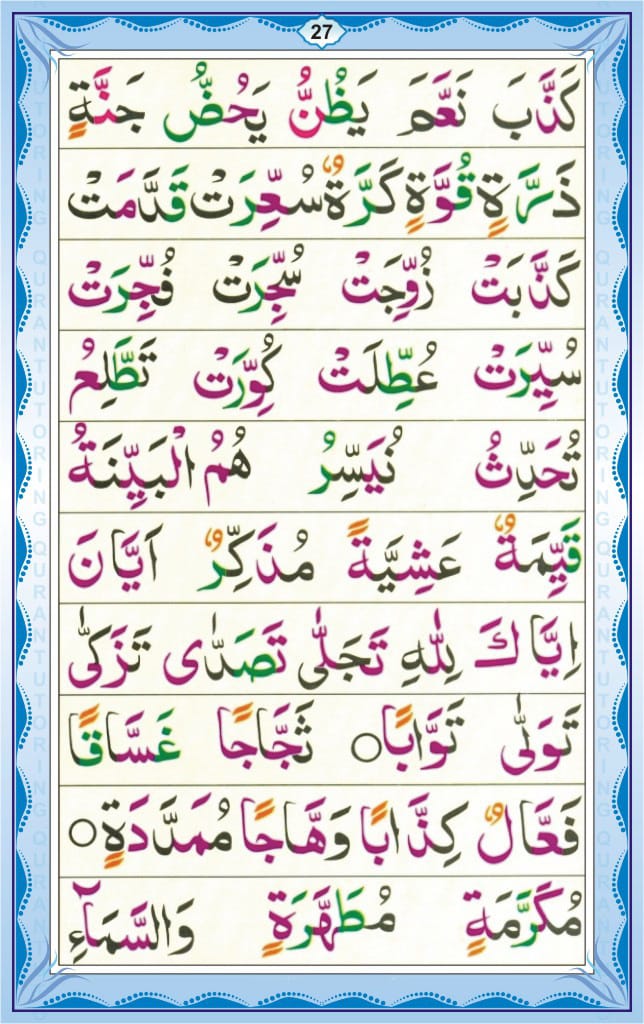 27
كَذَّبَ نَعَّمَ يَظُنُّ يَحُضُّ جَنَّةٍ
ذَرَّةٍ قُوَّةٍ كَرَّةٌ سُعِّرَتْ قَدَّمَتْ
كَذَّبَتْ زُوِّجَتْ سُجِّرَتْ فُجِّرَتْ
سُيِّرَتْ عُطِّلَتْ كُوِّرَتْ تَطَّلِعُ
تُحَدِّثُ نُيَسِّرُ هُمُ الْبَيِّنَةُ
قَيِّمَةٌ عَشِيَّةً مُذَكِّرٌ اَيَّانَ
اِيَّاكَ لِلّٰهِ تَجَلّٰى تَصَدّٰى تَزَكّٰى
تَوَلّٰى تَوَّابًا ثَجَّاجًا غَسَّاقًا
فَعَّالٌ كِذَّابًا وَهَّاجًا مُمَدَّدَةٍ
مُكَرَّمَةٍ مُطَهَّرَةٍ وَالسَّمَآءِ
QURAN TUTORING QURAN TUTORING QURAN TUTORING
QURAN TUTORING QURAN TUTORING QURAN TUTORING